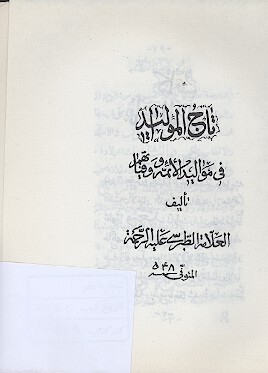 تاج المواليد
في مواليد الأئمة ووفياتهم
تأليف
العلامة الطبرسي عليه الرحمة
المتوفى سنة ٥٤٨